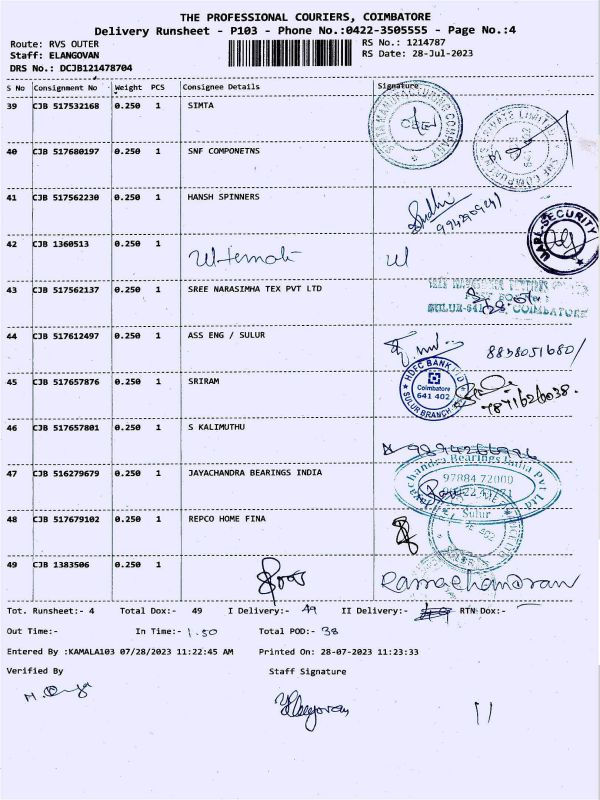 THE PROFESSIONAL COURIERS, COIMBATORE
Delivery Runsheet - P103 - Phone No.:0422-3505555 - Page No.:4
Route: RVS OUTER RS No.: 1214787
Staff: ELANGOVAN RS Date: 28-Jul-2023
DRS No.: DCJB121478704
S No Consignment No Weight PCS Consignee Details Signature
39 CJB 517532168 0.250 1 SIMTA
40 CJB 517680197 0.250 1 SNF COMPONETNS
41 CJB 517562230 0.250 1 HANSH SPINNERS
42 CJB 1360513 0.250 1
UARL-SECURITY
43 CJB 517562137 0.250 1 SREE NARASIMHA TEX PVT LTD
44 CJB 517612497 0.250 1 ASS ENG / SULUR
8838051680/
45 CJB 517657876 0.250 1 SRIRAM
HDFC BANK LTD
Coimbatore
641 402
SULUR BRANCH
46 CJB 517657801 0.250 1 S KALIMUTHU
47 CJB 516279679 0.250 1 JAYACHANDRA BEARINGS INDIA
Jayachandra Bearings India Pvt Ltd
97884 72000
Sulur
48 CJB 517679102 0.250 1 REPCO HOME FINA
49 CJB 1383506 0.250 1 Ramachandran
Tot. Runsheet:- 4 Total Dox:- 49 I Delivery:- 49 II Delivery:- RTN Dox:-
Out Time:- In Time:- 1.50 Total POD:- 38
Entered By :KAMALA103 07/28/2023 11:22:45 AM Printed On: 28-07-2023 11:23:33
Verified By Staff Signature